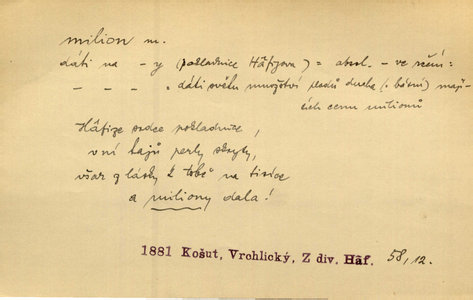 milion m.
dáti na – y (pokladnice Hâfizova) = absol. – ve rčení:
– – – . dáti světu množství plodů ducha (: básní) mají-
cích cenu milionů
Hâfize srdce pokladnice,
v ní bajů perly skryty,
však z lásky k tobě na tisíce
a miliony dala!
1881 Košut, Vrchlický, Z div. Hâf. 58, 12.